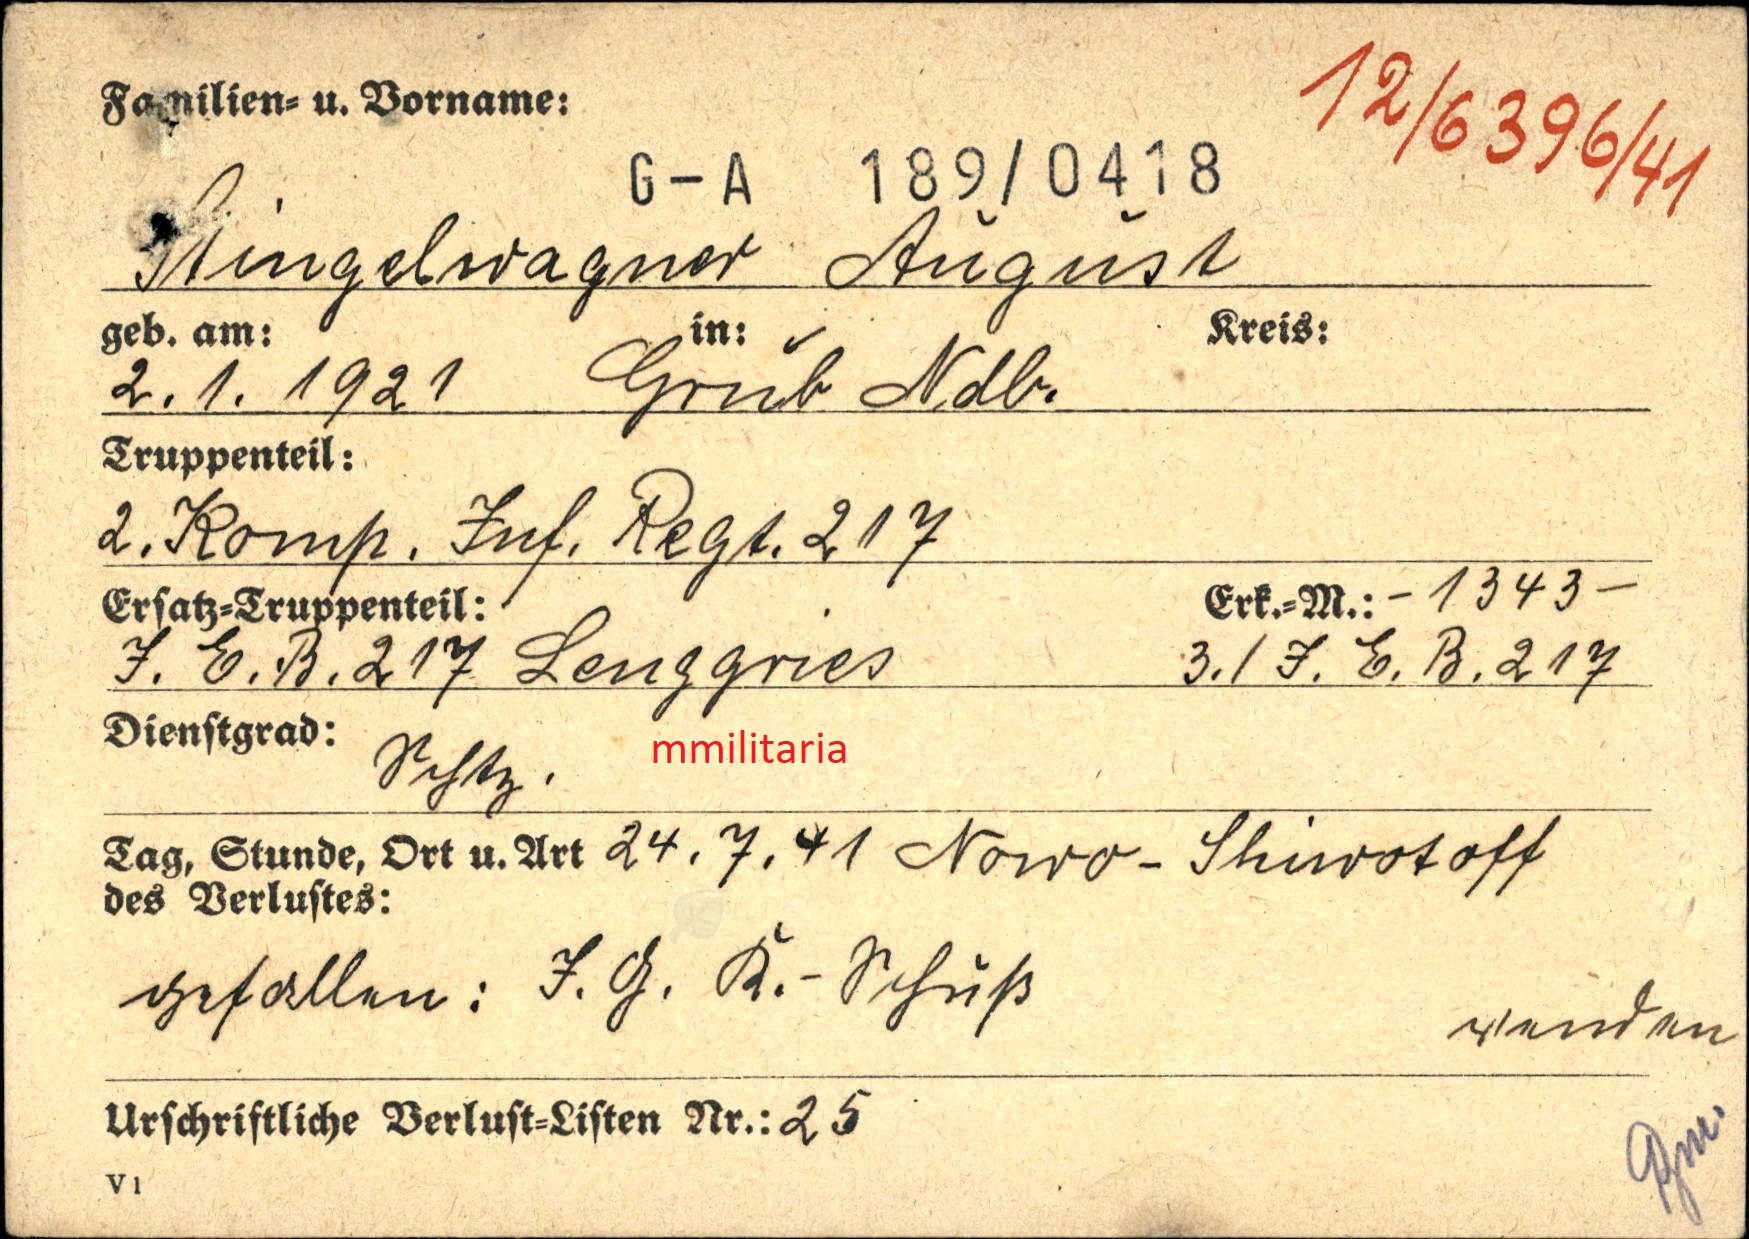 Familien- u. Vorname:
12/6396/41
G-A 189/0418
Stingelwagner August
geb. am: in: Kreis:
2.1.1921 Grub Ndb.
Truppenteil:
2. Komp. Inf. Regt. 217
Ersatz-Truppenteil: Erk.-M.: - 1343 -
I. E. B. 217 Lenggries 3./ I. E. B. 217
Dienstgrad:
Schtz.
mmilitaria
Tag, Stunde, Ort u. Art 24.7.41 Nowo-Shiwotoff
des Verlustes:
gefallen: I. G. K.-Schuß
wenden
Urschriftliche Verlust-Listen Nr.: 25
V 1